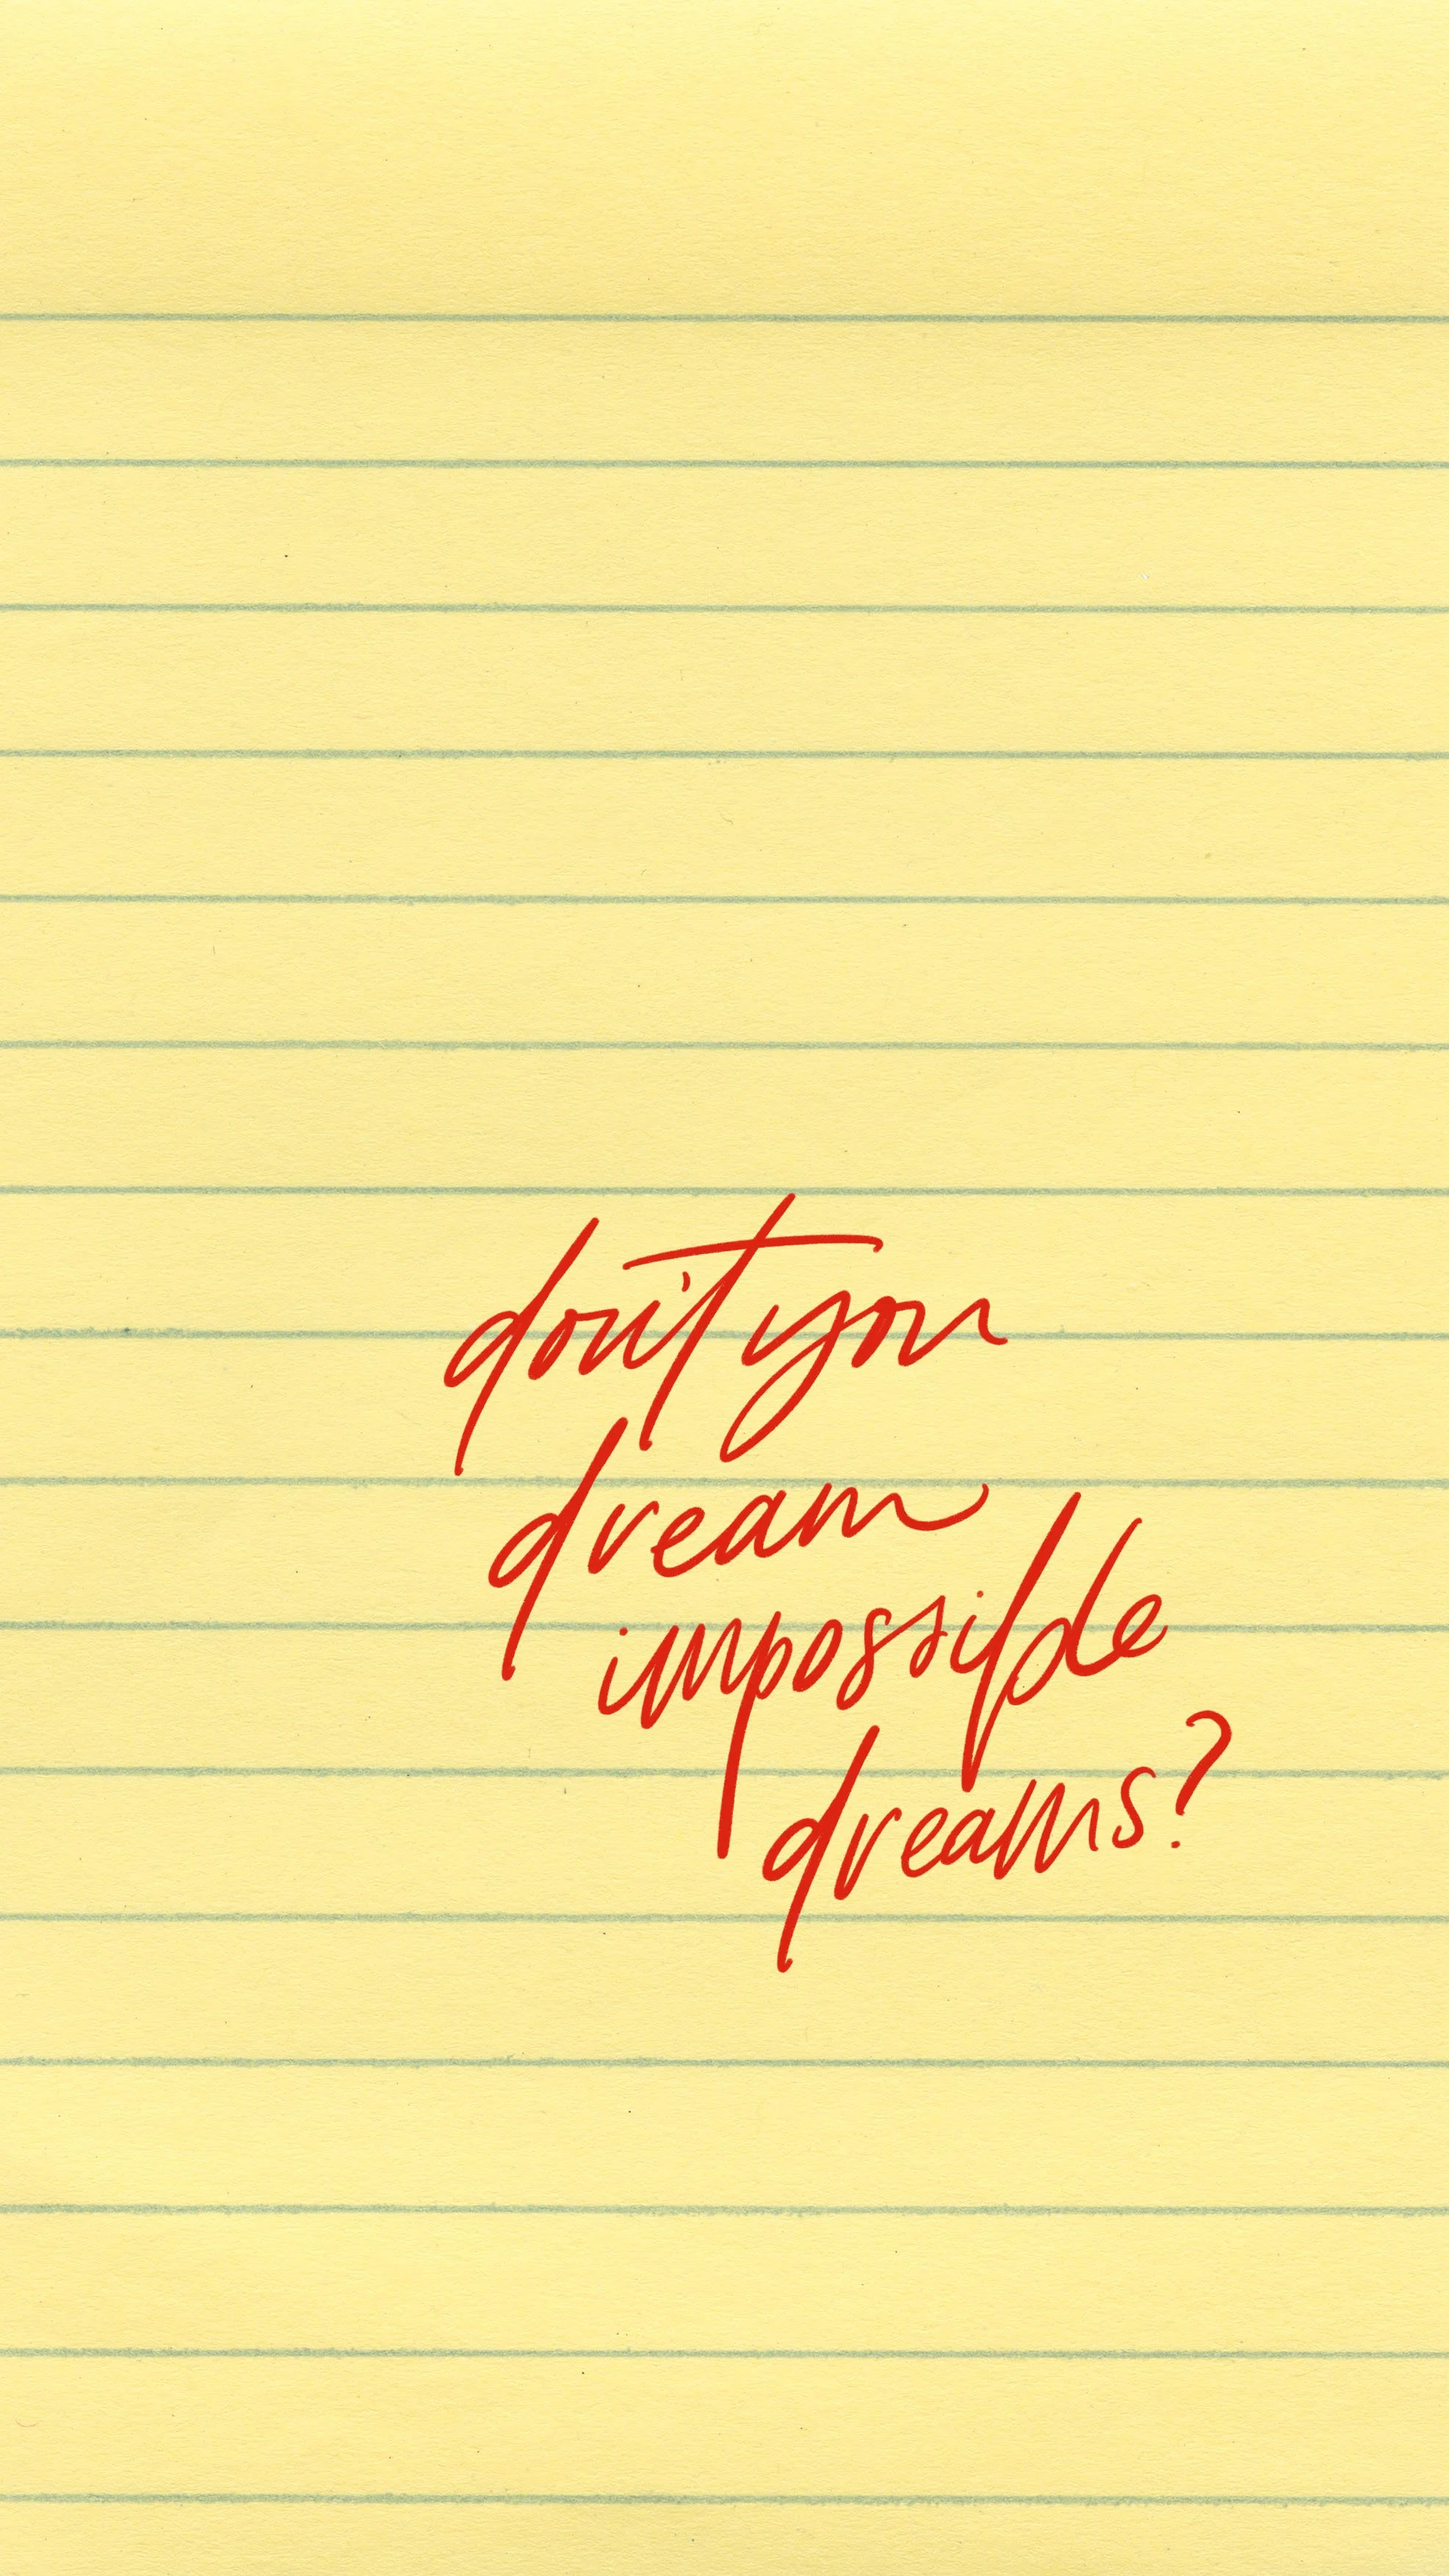 don't you
dream
impossible
dreams?